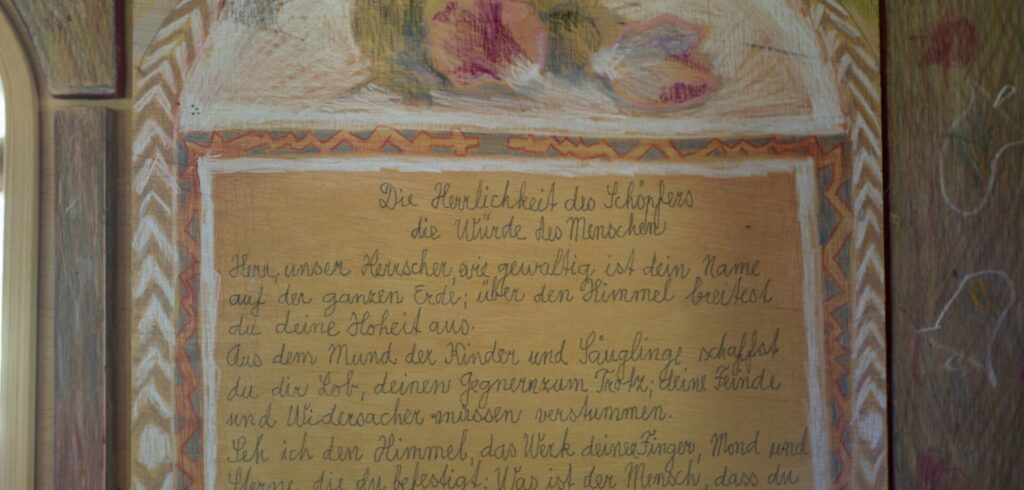 Die Herrlichkeit des Schöpfers
die Würde des Menschen
Herr, unser Herrscher, wie gewaltig ist dein Name
auf der ganzen Erde; über den Himmel breitest
du deine Hoheit aus.
Aus dem Mund der Kinder und Säuglinge schaffst
du dir Lob, deinen Gegnern zum Trotz; deine Feinde
und Widersacher müssen verstummen.
Seh ich den Himmel, das Werk deiner Finger, Mond und
Sterne, die du befestigt: Was ist der Mensch, dass du